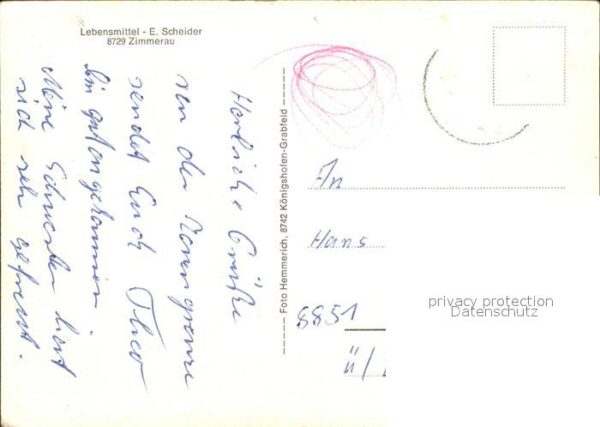 Lebensmittel - E. Scheider
8729 Zimmerau
Herzliche Grüße
von der Zonengrenze
sendet Euch Theo
Bin gut angekommen.
Meine Schwester hat
sich sehr gefreut.
Foto Hemmerich, 8742 Königshofen-Grabfeld
An
Hans
8851
ü/
privacy protection
Datenschutz